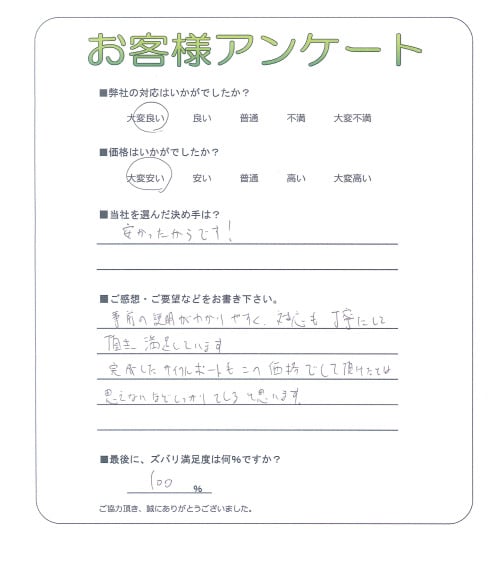 お客様アンケート
■弊社の対応はいかがでしたか？
大変良い 良い 普通 不満 大変不満
■価格はいかがでしたか？
大変安い 安い 普通 高い 大変高い
■当社を選んだ決め手は？
安かったからです！
■ご感想・ご要望などをお書き下さい。
事前の説明がわかりやすく、対応も丁寧にして
頂き、満足しています
完成したサイクルポートもこの価格でして頂けたとは
思えないほどしっかりしてると思います。
■最後に、ズバリ満足度は何%ですか？
100 %
ご協力頂き、誠にありがとうございました。